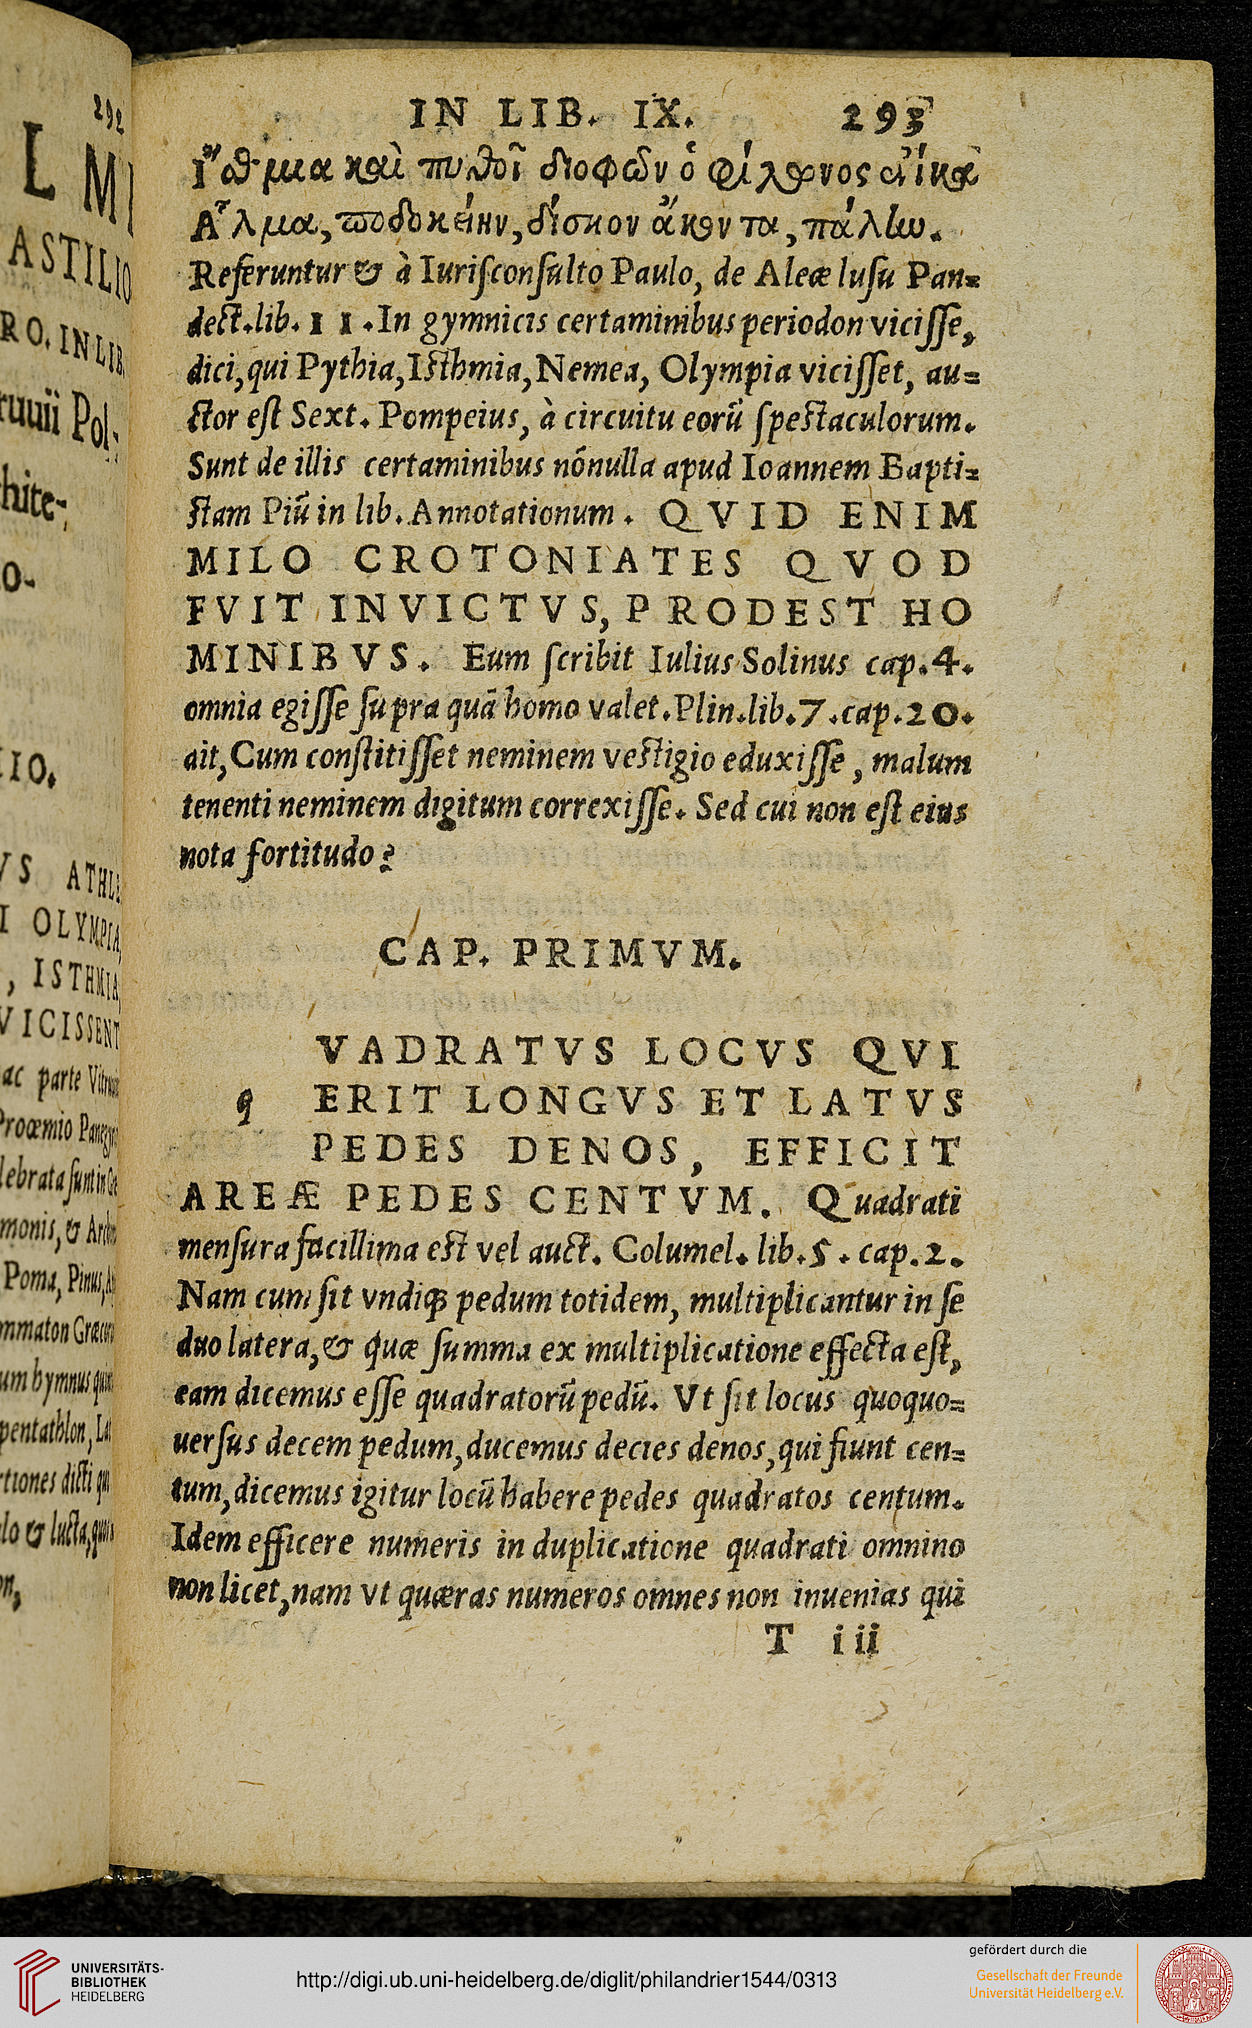 292
L MI
ASTILIO
RO. IN LIB.
ruuii Pol-
hite-
o-
IO.
VS ATHL
I OLYMPIA,
, ISTHMIA,
VICISSENT
ac parte
Proœmio
lebrata sunt in
monis, &
Poma, Pinus,
mmaton Græco
um hymnus
pentathlon,
ctiones dicti
lo & lucta,
on,
IN LIB. IX. 293
Ἴσθμια καὶ πυθοῖ διοφῶν ὁ φίλωνος ἐνίκα
Ἅλμα, ποδοκείην, δίσκον ἄκοντα, πάλην.
Referuntur & à Iurisconsulto Paulo, de Aleæ lusu Pan=
dect.lib. 11. In gymnicis certaminibus periodon vicisse,
dici, qui Pythia, Isthmia, Nemea, Olympia vicisset, au=
ctor est Sext. Pompeius, à circuitu eorũ spectaculorum.
Sunt de illis certaminibus nõnulla apud Ioannem Bapti=
stam Piũ in lib. Annotationum. QVID ENIM
MILO CROTONIATES QVOD
FVIT INVICTVS, PRODEST HO
MINIBVS. Eum scribit Iulius Solinus cap. 4.
omnia egisse supra quã homo valet. Plin. lib. 7. cap. 20.
ait, Cum constitisset neminem vestigio eduxisse, malum
tenenti neminem digitum correxisse. Sed cui non est eius
nota fortitudo?
CAP. PRIMVM.
VADRATVS LOCVS QVI
q ERIT LONGVS ET LATVS
PEDES DENOS, EFFICIT
AREÆ PEDES CENTVM. Quadrati
mensura facillima est vel auct. Columel. lib. 5. cap. 2.
Nam cum sit vndiqꝫ pedum totidem, multiplicantur in se
duo latera, & quæ summa ex multiplicatione effecta est,
eam dicemus esse quadratorũ pedũ. Vt sit locus quoquo=
uersus decem pedum, ducemus decies denos, qui fiunt cen=
tum, dicemus igitur locũ habere pedes quadratos centum.
Idem efficere numeris in duplicatione quadrati omnino
non licet, nam vt quæras numeros omnes non inuenias qui
T iii
UNIVERSITÄTS-
BIBLIOTHEK
HEIDELBERG
http://digi.ub.uni-heidelberg.de/diglit/philandrier1544/0313
gefördert durch die
Gesellschaft der Freunde
Universität Heidelberg e.V.